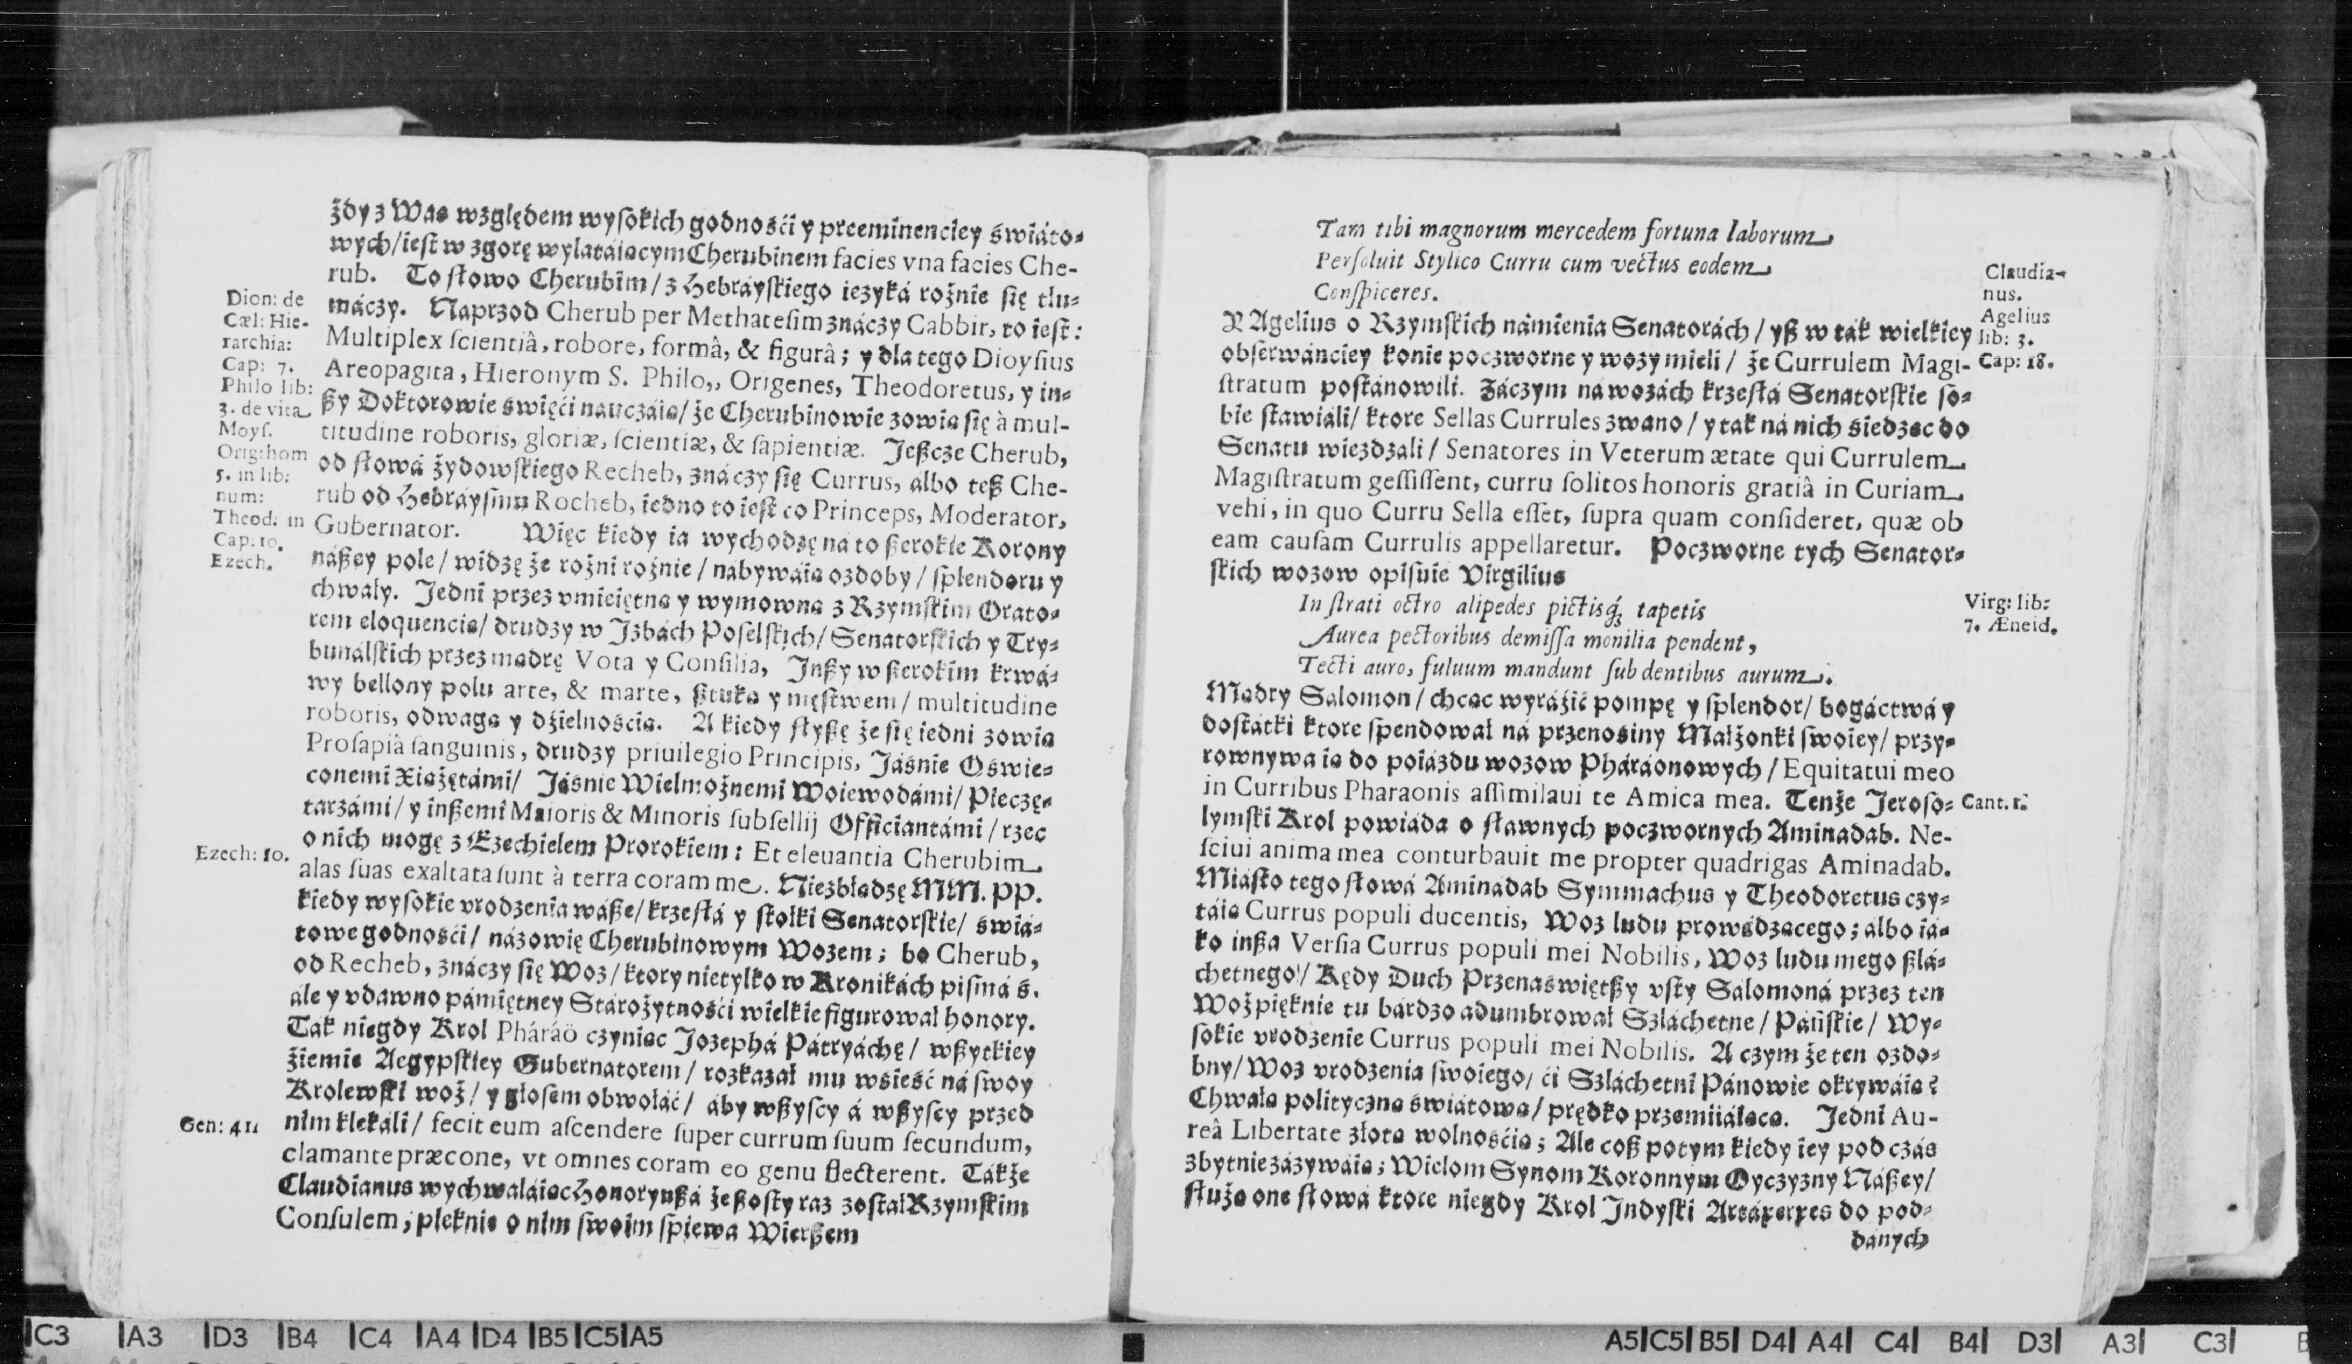 żdy z Was względem wysokich godnośći y preeminenciey świáto-
wych/ iest w zgorę wylátáiącym Cherubinem facies vna facies Che-
rub. To słowo Cherubim/ z Hebráyskiego ięzyká rożnie się tłu-
máczy. Naprzod Cherub per Methatesim znáczy Cabbir, to iest:
Multiplex scientiâ, robore, formâ, & figurâ; y dla tego Dioysius
Areopagita, Hieronym S. Philo,, Origenes, Theodoretus, y in-
ßy Doktorowie święći náuczáią/ że Cherubinowie zowią się à mul-
titudine roboris, gloriæ, scientiæ, & sapientiæ. Jeßcze Cherub,
od słowá żydowskiego Recheb, znáczy się Currus, albo teß Che-
rub od Hebráysmu Rocheb, iedno to iest co Princeps, Moderator,
Gubernator. Więc kiedy ia wychodzę ná to ßerokie Korony
náßey pole/ widzę że rożni rożnie/ nabywáią ozdoby/ splendoru y
chwały. Jedni przez vmieiętną y wymowną z Rzymskim Orato-
rem eloquencią/ drudzy w Jzbách Poselskich/ Senatorskich y Try-
bunálskich przez mądrę Vota y Consilia, Jnßy w ßerokim krwá-
wy bellony polu arte, & marte, ßtuką y męstwem/ multitudine
roboris, odwagą y dźielnośćią. A kiedy słyßę że się iedni zowią
Prosapiâ sanguinis, drudzy priuilegio Principis, Jáśnie Oświe-
conemi Xiążętámi/ Jáśnie Wielmożnemi Woiewodámi/ Pieczę-
tarzámi/ y inßemi Maioris & Minoris subsellij Officiantámi/ rzec
o nich mogę z Ezechielem Prorokiem: Et eleuantia Cherubim
alas suas exaltata sunt à terra coram me. Niezbłądzę MM. PP.
kiedy wysokie vrodzenia wáße/ krzesłá y stołki Senatorskie/ świá-
towe godnośći/ názowię Cherubinowym Wozem; bo Cherub,
od Recheb, znáczy się Woz/ ktory nietylko w Kronikách pismá ś.
ále y vdawno pámiętney Stárożytnośći wielkie figurował honory.
Ták niegdy Krol Pháráö czyniąc Jozephá Pátryáchę/ wßytkiey
źiemie Aegypskiey Gubernatorem/ rozkazał mu wśieść ná swoy
Krolewski woz/ y głosem obwołáć/ áby wßyscy á wßyscy przed
nim klękáli/ fecit eum ascendere super currum suum secundum,
clamante præcone, vt omnes coram eo genu flecterent. Tákże
Claudianus wychwaláiąc Honoryußá że ßosty raz został Rzymskim
Consulem; pięknie o nim swoim śpiewa Wierßem
Dion: de
Cæl: Hie-
rarchia:
Cap: 7.
Philo lib:
3. de vita
Moys.
Orig: hom
5. in lib:
num:
Theod: in
Cap: 10.
Ezech.
Ezech: 10.
Gen: 41.
Tam tibi magnorum mercedem fortuna laborum
Persoluit Stylico Curru cum vectus eodem
Conspiceres.
Y Agelius o Rzymskich námienia Senatorách/ yß w ták wielkiey
obserwánciey konie poczworne y wozy mieli/ że Currulem Magi-
stratum postánowili. Záczym ná wozách krzesłá Senatorskie so-
bie stawiáli/ ktore Sellas Currules zwano/ y tak ná nich śiedząc do
Senatu wieżdzali/ Senatores in Veterum ætate qui Currulem
Magistratum gessissent, curru solitos honoris gratiâ in Curiam
vehi, in quo Curru Sella esset, supra quam consideret, quæ ob
eam causam Currulis appellaretur. Poczworne tych Senator-
skich wozow opisuie Virgilius
In strati octro alipedes pictisq́; tapetis
Aurea pectoribus demissa monilia pendent,
Tecti auro, fuluum mandunt sub dentibus aurum.
Mądry Salomon/ chcąc wyráźić pompę y splendor/ bogáctwá y
dostátki ktore spendował ná przenośiny Małżonki swoiey/ przy-
rownywa ią do poiázdu wozow Pháráonowych/ Equitatui meo
in Curribus Pharaonis assimilaui te Amica mea. Tenże Jeroso-
lymski Krol powiáda o sławnych poczwornych Aminadab. Ne-
sciui anima mea conturbauit me propter quadrigas Aminadab.
Miásto tego słowá Aminadab Symmachus y Theodoretus czy-
táią Currus populi ducentis, Woz ludu prowádzącego; álbo iá-
ko inßa Versia Currus populi mei Nobilis, Woz ludu mego ßlá-
chetnego/ Kędy Duch Przenaświętßy vsty Salomoná przez ten
Woz pięknie tu bárdzo adumbrował Szláchetne/ Páńskie/ Wy-
sokie vrodzenie Currus populi mei Nobilis. A czym że ten ozdo-
bny/ Woz vrodzenia swoiego/ ći Szláchetni Pánowie okrywáią?
Chwałą polityczną świátową/ prędko przemiiáiącą. Jedni Au-
reâ Libertate złotą wolnośćią; Ale coß potym kiedy iey pod czás
zbytnie záżywáią; Wielom Synom Koronnym Oyczyzny Náßey/
służą one słowá ktore niegdy Krol Jndyski Artáxerxes do pod-
dánych
Claudia-
nus.
Agelius
lib: 3.
Cap: 18.
Virg: lib:
7. Æneid.
Cant. 1.
C3 A3 D3 B4 C4 A4 D4 B5 C5 A5
A5 C5 B5 D4 A4 C4 B4 D3 A3 C3 B